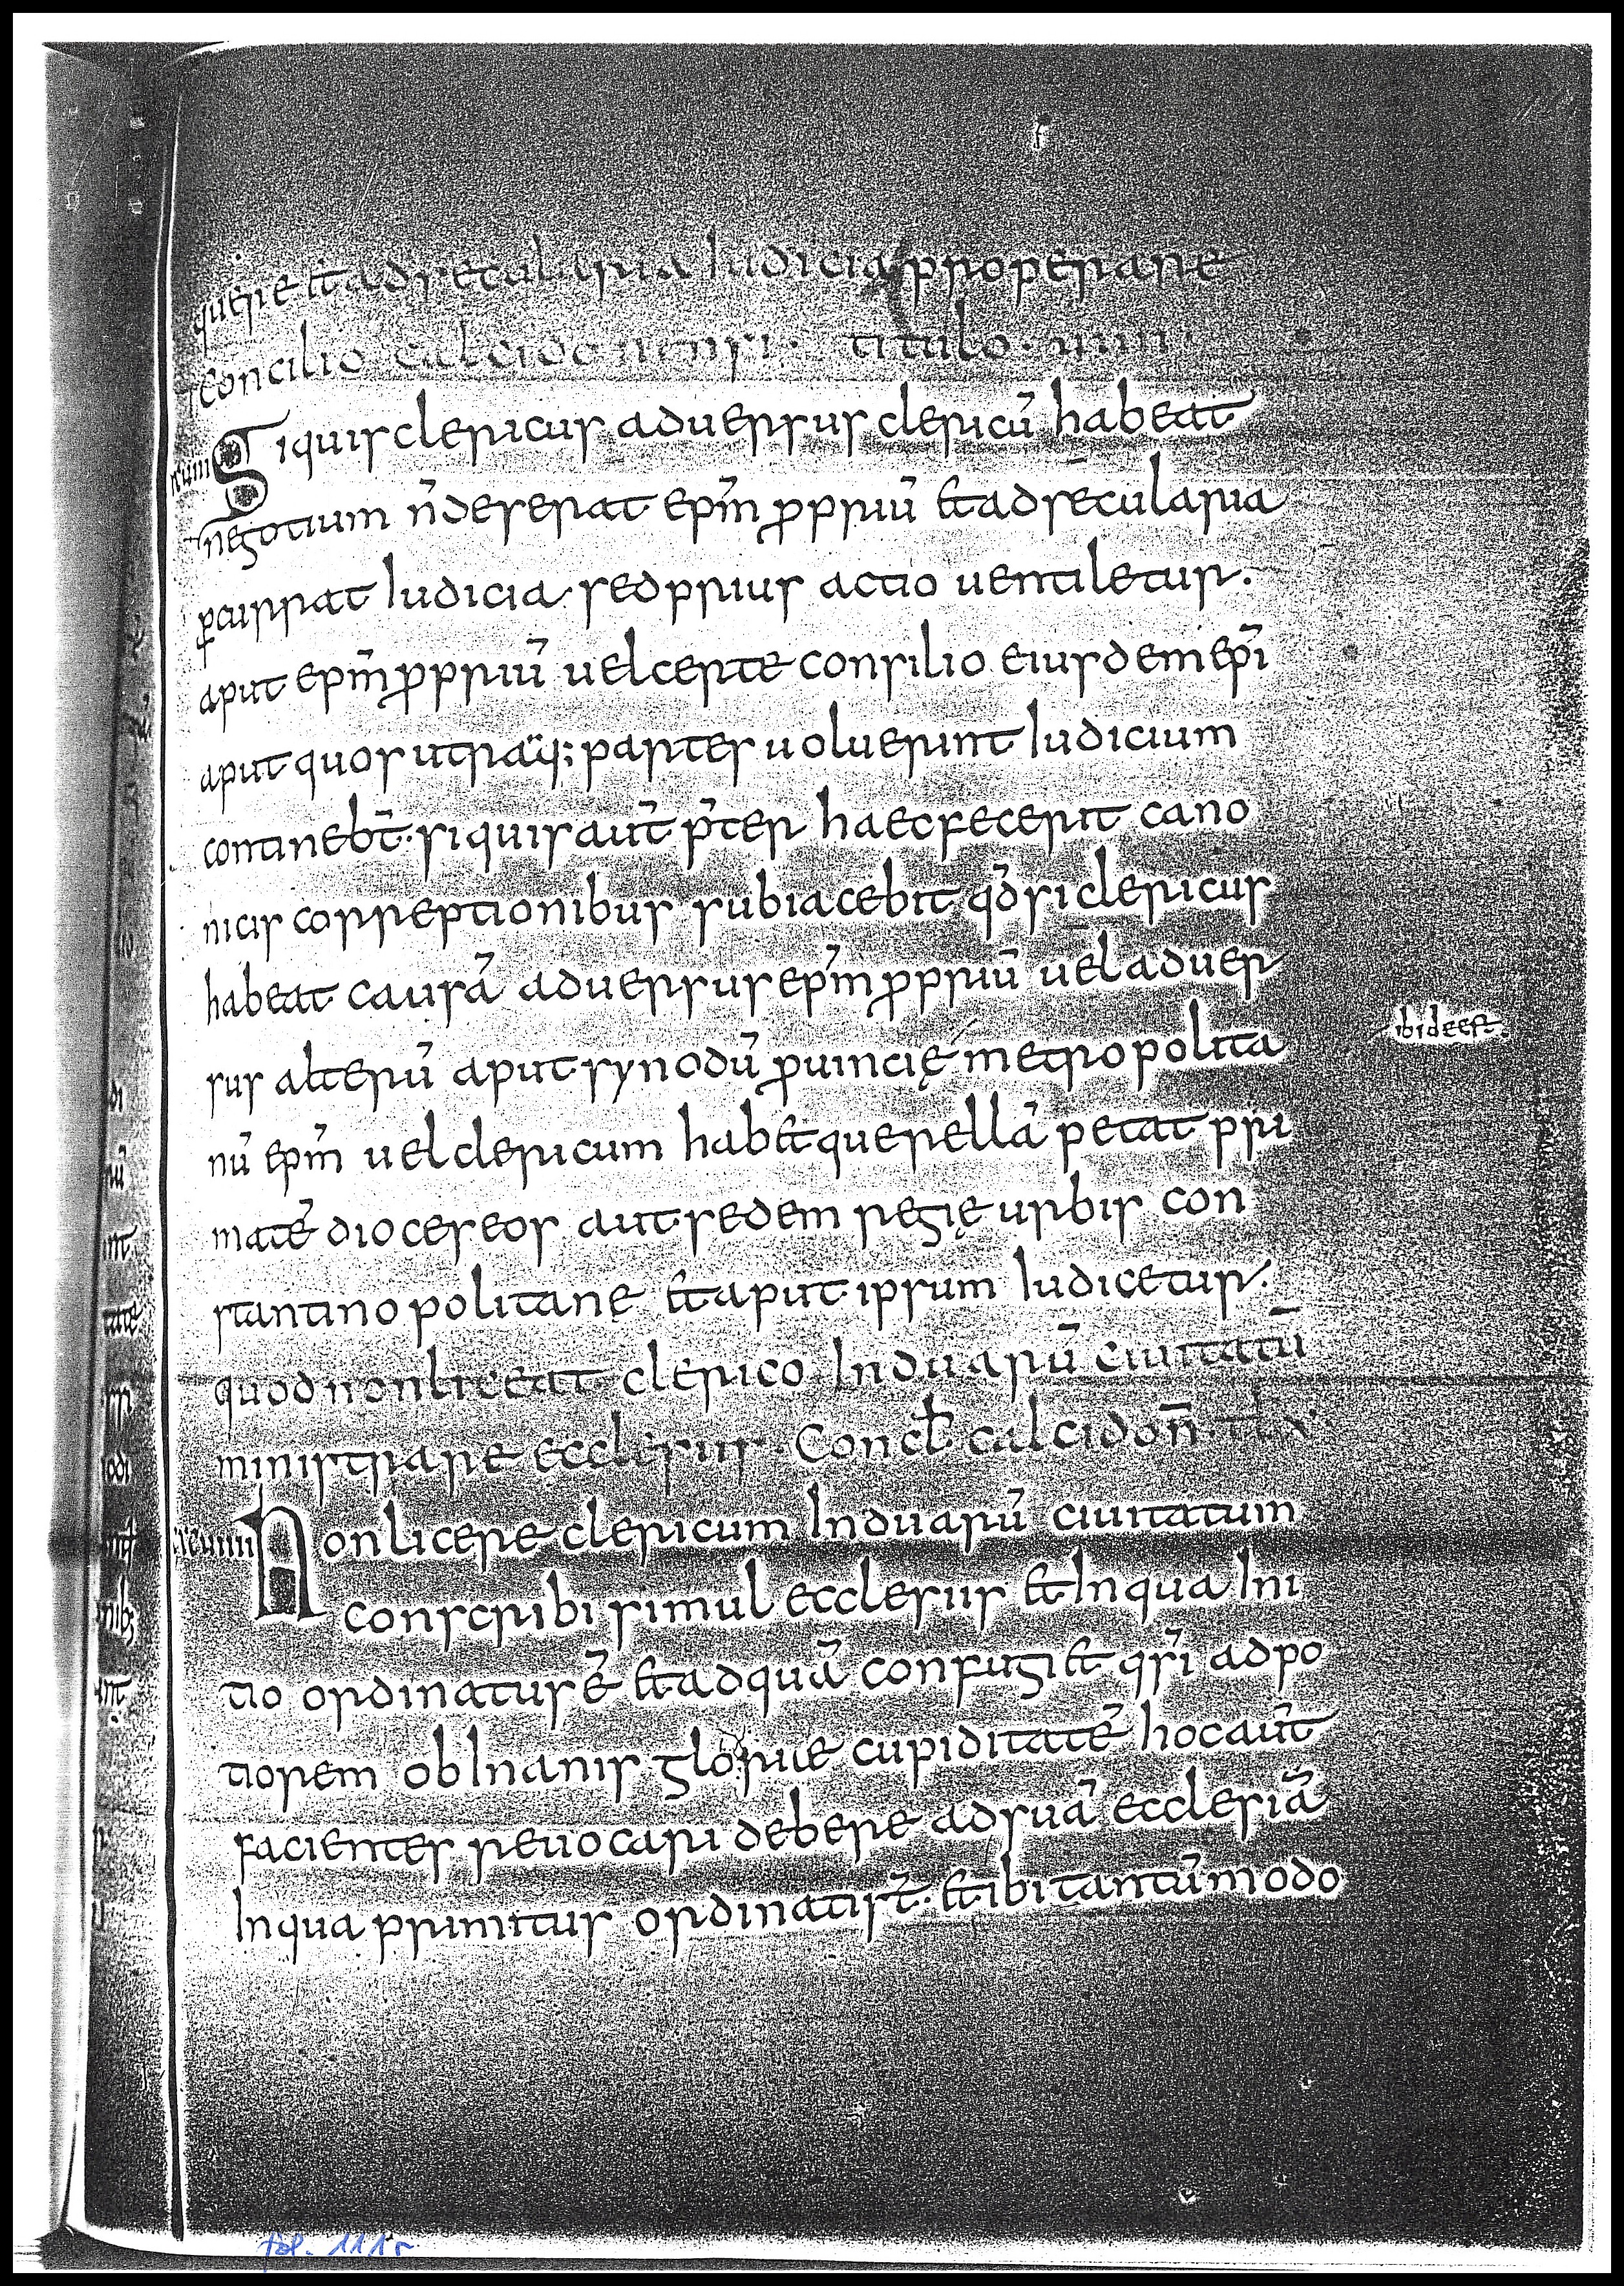 querere et ad secularia Iudicia properare
concilio calcidonensi · titulo · uiiii ·
Siquis clericus aduersus clericū habeat
negotium n̄ deserat ep̄m ꝓpriū et ad secularia
ꝑcurrat Iudicia · sed prius actio uentiletur ·
aput ep̄m ꝓpriū uel certe consilio eiusdem ep̄i
aput quos utraq; partes uoluerint Iudicium
contineb̄t · siquis aut̄ p̄ter haec fecerit cano
nicis correptionibus subiacebit qd̄ si clericus
habeat causā aduersus ep̄m ꝓpriū uel aduer
sus alterū aput synodū ꝓuincię metropolita
ibi deest
nū ep̄m uel clericum habet querellā petat pri
matē dioceseos aut sedem regię urbis con
stantinopolitanę et aput ipsum Iudicetur ·
quod non liceat clerico Induarū ciuitatū
ministrare ecclesiis · Concł calcidon̄ · tł x
Non licere clericum Induarū ciuitatum
conscribi simul ecclesiis et Inqua Ini
tio ordinatus ē et ad quā confugiet qsī ad po
tiorem ob Inanis glorie cupiditatē hoc aut̄
facientes reuocari debere ad suā ecclesiā
Inqua primitus ordinati st̄ · et ibi tantūmodo
fol. 111r